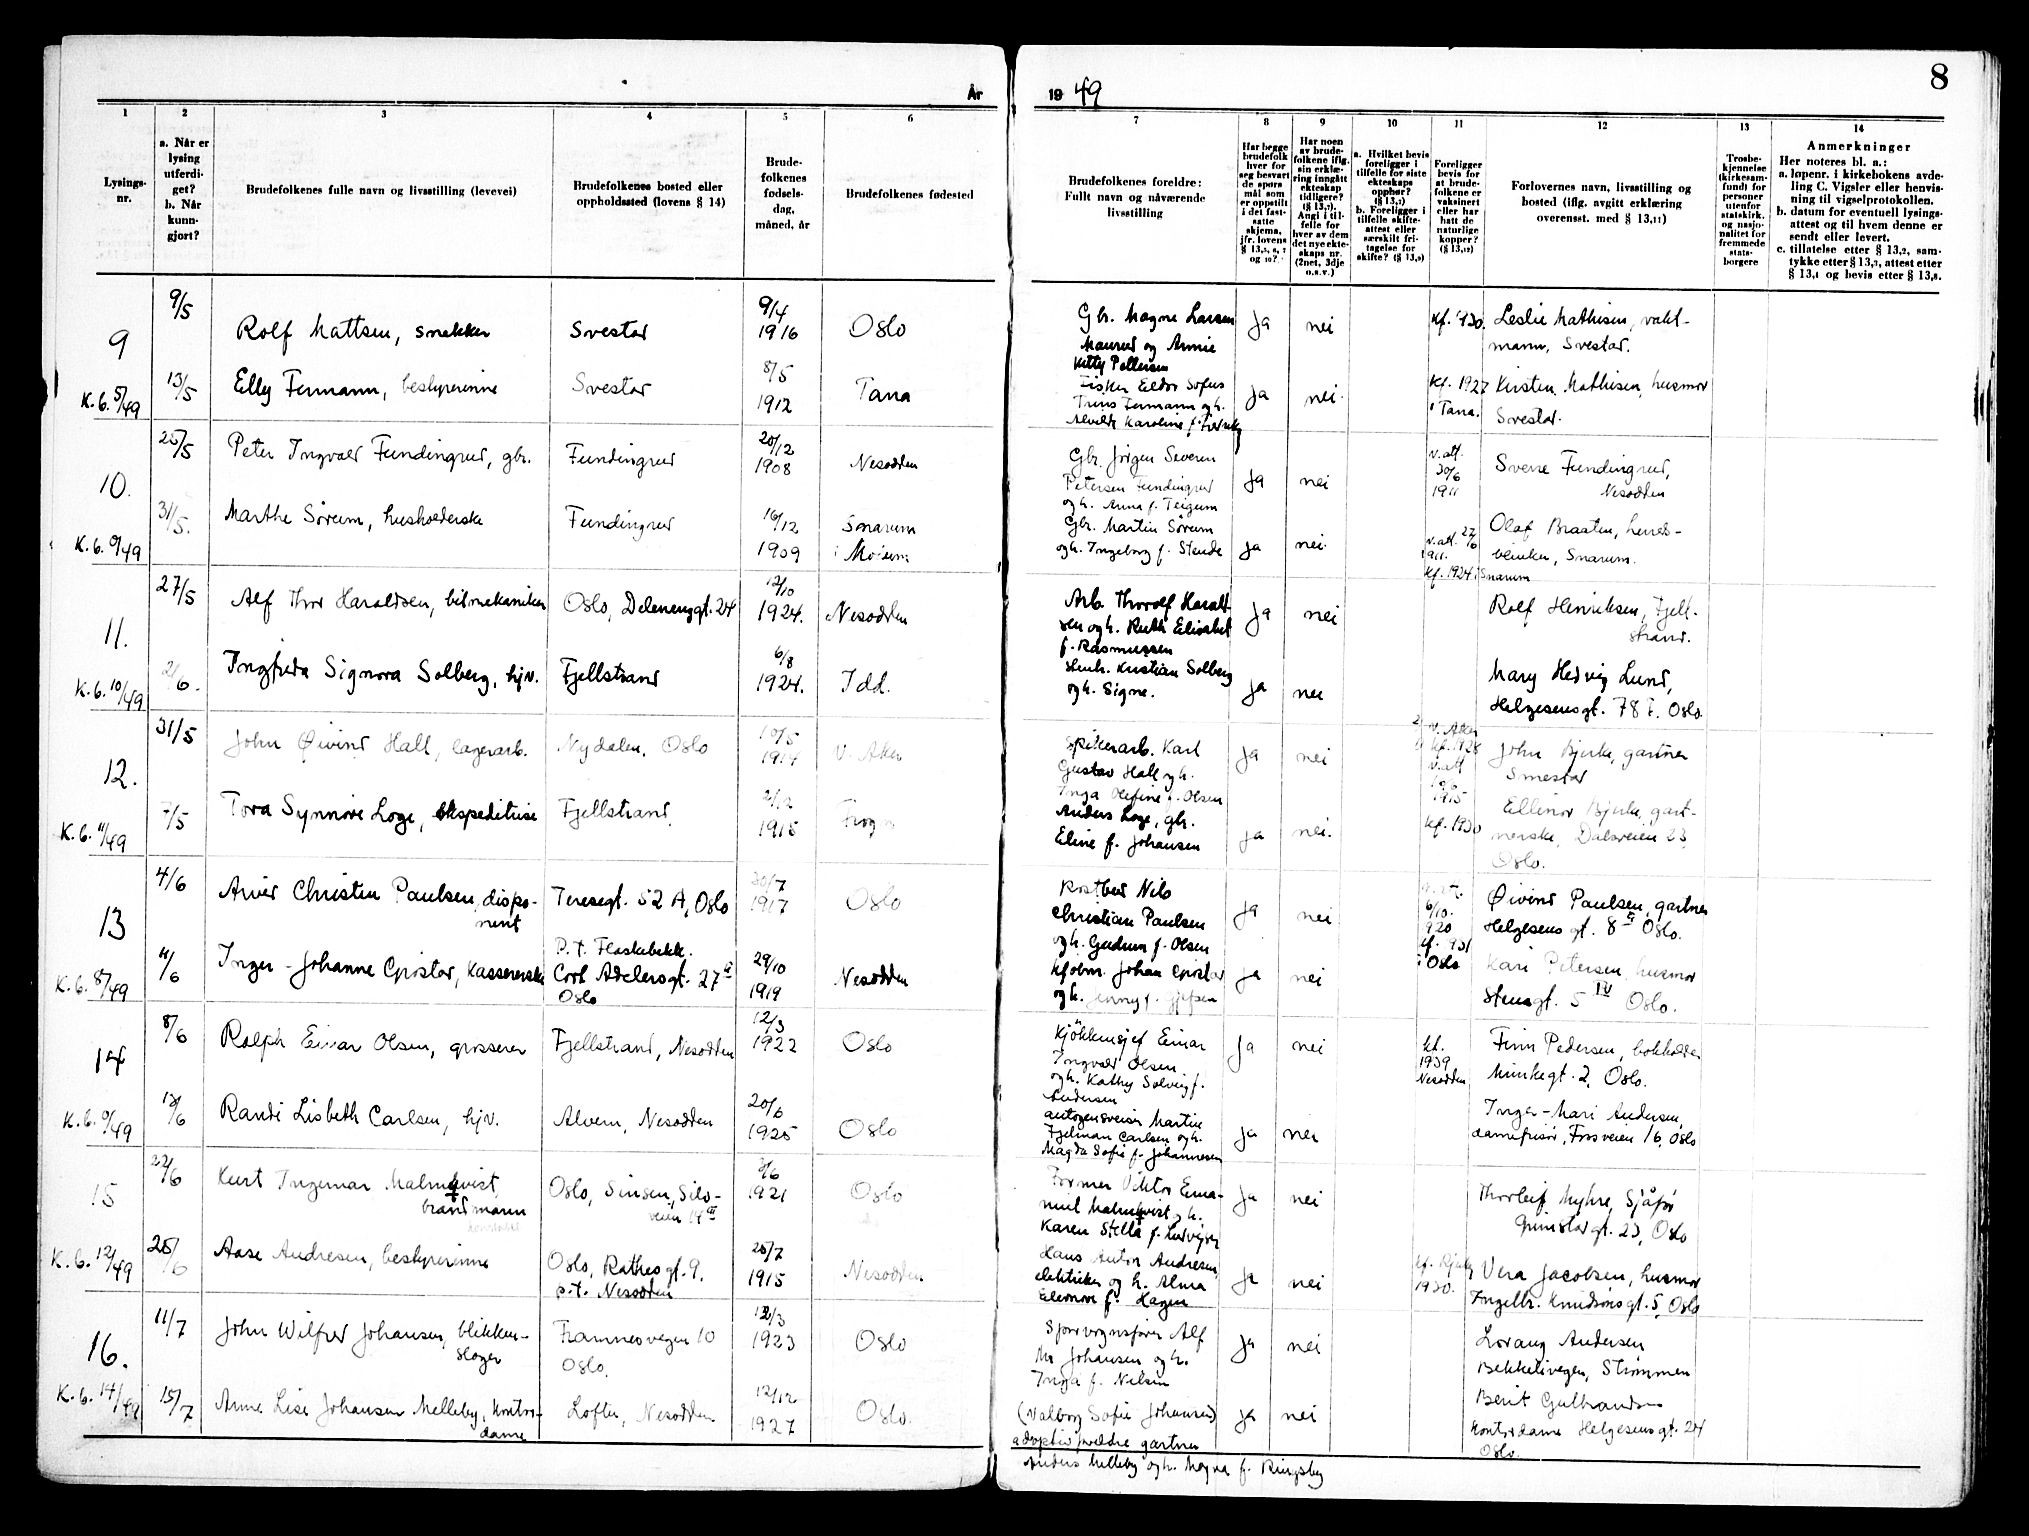 8
År
19 49
1
2
3
4
5
6
7
8
9
10
11
12
13
14
Lysings-
nr.
a. Når er
lysing
utferdi-
get?
b. Når
kunn-
gjort?
Brudefolkenes fulle navn og livsstilling (levevei)
Brudefolkenes bosted eller
oppholdssted (lovens § 14)
Brude-
folkenes
fødsels-
dag,
måned, år
Brudefolkenes fødested
Brudefolkenes foreldre:
Fullt navn og nåværende
livsstilling
Har begge
brudefolk
hver for
seg besvart
de spørs-
mål som
er oppstilt
i det fast-
satte
skjema,
jfr. lovens
og 10?
Har noen
av brude-
folkene iflg.
sin erklæ-
ring inngått
ekteskap
tidligere?
(§ 13,7).
Angi i til-
felle for
hver av dem
det nye ekte-
skaps nr.
(2net, 3dje
o.s.v.)
a. Hvilket bevis
foreligger i
tilfelle for siste
ekteskaps
opphør?
(§ 13,7)
b. Foreligger i
tilfelle skifte-
attest eller
særskilt fri-
tagelse for
skifte? (§ 13,9)
Foreligger
bevis for
at brude-
folkene er
vaksinert
eller har
hatt de
naturlige
kopper?
(§ 13,12)
Forlovernes navn, livsstilling og
bosted (iflg. avgitt erklæring
overensst. med § 13,11)
Trosbe-
kjennelse
(kirkesam-
fund) for
personer
utenfor
statskirk.
og nasjo-
nalitet for
fremmede
stats-
borgere
Anmerkninger
Her noteres bl. a.:
a. løpenr. i kirkebokens avde-
ling C. Vigsler eller henvis-
ning til vigselprotokollen.
b. datum for eventuell lysings-
attest og til hvem denne er
sendt eller levert.
c. tillatelse etter § 13,2, sam-
tykke etter § 13,3, attest etter
§ 13,1 og bevis etter § 13,8.
9
9/5
Rolf Mattsen, snekker
Svestad
9/4
1916
Oslo
Gbr. Magne Larsen
Maurud og Annie
Kitty Pettersen
Ja
nei
Kf. 1930.
Leslie Mathisen, vakt-
mann, Svestad.
K.6. 5/49
13/5
Elly Fermann, bestyrerinne
Svestad
8/5
1912
Tana
Fisker Eldor Sofus
Trins Fermann og h.
Ja
nei.
Kf. 1927
i Tana.
Kirsten Mathisen, husmor
Svestad.
10.
25/5
Peter Ingvald Fundingrud, gbr.
Fundingrud
20/12
1908
Nesodden
Gbr. Jörgen Severin
Petersen Fundingrud
og h. Anna f. Teigum
Ja
nei
v.att.
30/6
1911
Svene Fundingrud,
Nesodden
K.6. 6/49
31/5.
Marthe Sørum, husholderske
Fundingrud
16/12
1909
Snarum
i Modum
Gbr. Martin Sørum
og h. Ingeborg f. Stende
Ja
nei.
v.att. 27/6
1911.
Kf. 1924 i Snarum
Olaf Braaten, herreds-
Snarum.
11.
27/5
Alf Thor Haraldsen, bilmekaniker
Oslo, Delenenggt. 24
12/10
1924.
Nesodden
Arb. Thorolf Harald-
sen og h. Ruth Elisabet
f. Rasmussen
Ja
nei
Rolf Henriksen, Fjell-
strand.
K.6. 10/49
2/6.
Ingfrida Signora Solberg, hjv.
Fjellstrand
6/8
1924.
Idd.
Kristian Solberg
og h. Signe.
Ja
nei
Mary Hedvig Lund,
Helgesensgt. 78 F. Oslo.
12.
31/5
John Øivind Hall, lagerarb.
Nydalen, Oslo
10/5
1914
V. Aker
Spikerarb. Karl
Gustav Hall og h.
Inga Olefine f. Olsen
Ja
nei
V. Aker
kf. 1928
John Bjerke, gartner
Smestad
K.6. 11/49
7/5
Tora Synnøve Loge, ekspeditrise
Fjellstrand.
2/12
1915
Frogn
Anders Loge, gbr.
Eline f. Johansen
Ja
nei.
v.att
1915
kf. 1930
Ellinor Bjerke, gart-
nerske, Dalsveien 23,
Oslo.
13
4/6
Arvid Christen Paulsen, dispo-
nent
Teresegt. 52 A, Oslo
30/7
1917
Oslo
Postbud Nils
Christian Paulsen
og h. Gudrun f. Olsen
Ja
nei
6/10.
1920
kf. 1931
i Oslo
Øivind Paulsen, gartner
Helgesens gt. 8 II Oslo.
K.6. 8/49
11/6
Inger-Johanne Opostad, Kassererske
p.t. Flaskebekk.
Cort Adelersgt. 27 II
Oslo
29/10
1919
Nesodden
Kjøbm. Johan Opostad
og h. Jenny f. Gjefsen
Ja
nei
Kari Petersen, husmor
Stensgt. 5 IV Oslo.
14
8/6
Ralph Einar Olsen, grosserer
Fjellstrand, Nesodden
12/3
1922
Oslo
Kjökkensjef Einar
Ingvald Olsen
og h. Kathy Solveig f.
Andersen
Ja
nei
kf.
1939
Nesodden
Finn Pedersen, bokholder
Munkegt. 2, Oslo.
K.6. 9/49
13/6
Randi Lisbeth Carlsen, hjv.
Alvern, Nesodden
20/6
1925
Oslo
autogensveiser Martin
Hjelman Carlsen og h.
Magda Sofie f. Johannesen
Ja
nei
Inger-Mari Andersen,
damefrisør, Fossveien 16, Oslo
15
22/6
Kurt Ingemar Malmkvist,
brandmann
Oslo, Sinsen, Silo-
veien 14 III
3/6
1921
Oslo
Former Viktor Ema-
nuel Malmkvist og h.
Karen Stella f. Ludvigsen
Ja
nei
Thorleif Myhre, Sjåfør
Grimstadgt. 23, Oslo
K.6. 12/49
25/6
Aase Andresen, bestyrerinne
Oslo, Rathes gt. 9.
p.t. Nesodden
25/7
1915
Nesodden
Hans Anton Andresen,
elektriker og h. Alma
Eleonore f. Hagen
Ja
nei
1930.
Vera Jacobsen, husmor
Ingelbr. Knudsønsgt. 5, Oslo
16.
11/7
John Wilfred Johansen, blikken-
slager
Framnesvegen 10
Oslo.
1923
Oslo
Sporvognsfører Alf
M. Johansen og h.
Inga f. Nilsen
Ja
nei
Lorang Andersen
Bekkelivegen, Strömmen
K.6. 14/49
15/7
Anne Lise Johansen Melleby, kontor-
dame
Lofter, Nesodden
12/12
1927
Oslo.
(Valborg Sofie Johansen)
adoptivforeldre gartner
Anders Melleby og h. Magna f. Ringsby
Ja
nei
Berit Gulbrandsen
Kontordame Helgesensgt. 24
Oslo.